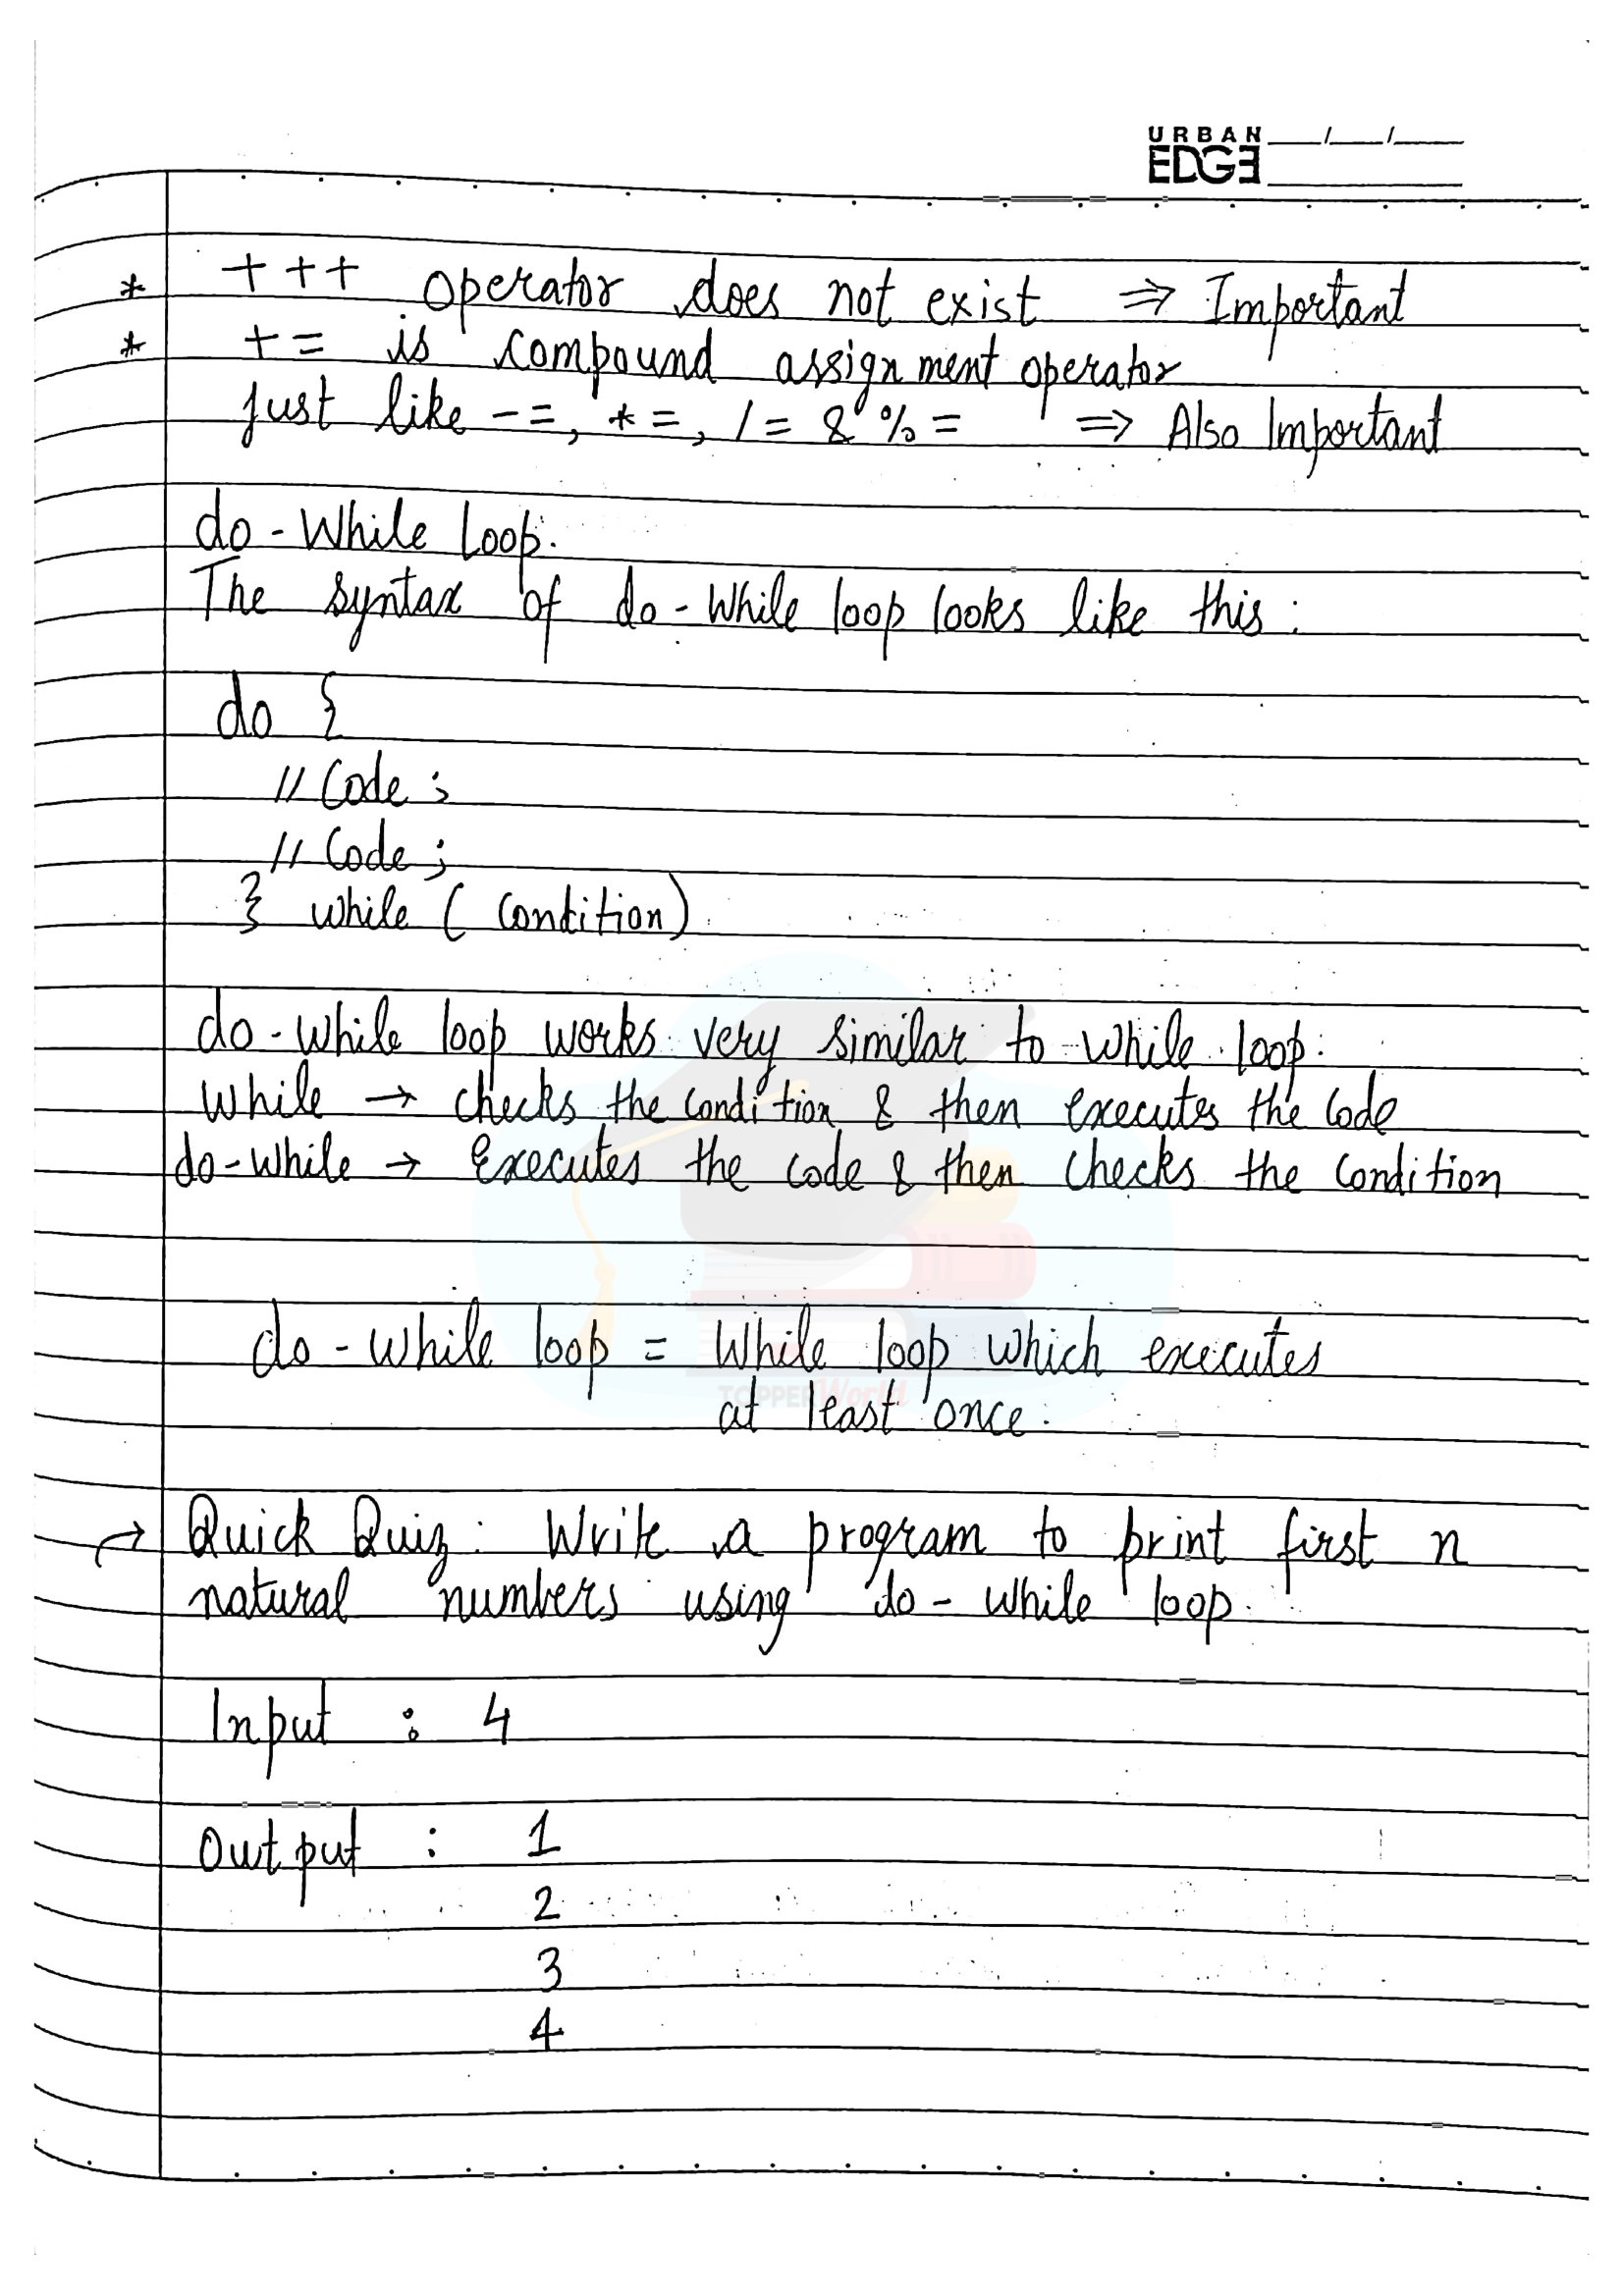 URBAN
EDGE
* +++ operator does not exist ⇒ Important
* += is compound assignment operator
just like -=, *=, /= & %= ⇒ Also Important
do-While Loop:
The syntax of do-While loop looks like this:
do {
// Code;
// Code;
} while (Condition)
do-while loop works very similar to while loop.
While → checks the condition & then executes the code
do-while → Executes the code & then checks the condition
do-while loop = While loop which executes
TOPPERWorld
at least once.
→ Quick Quiz: Write a program to print first n
natural numbers using do-while loop.
Input : 4
Output : 1
2
3
4